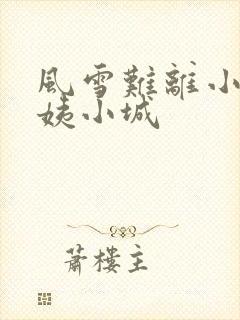 風雪難離小
姨小城
蕭樓主